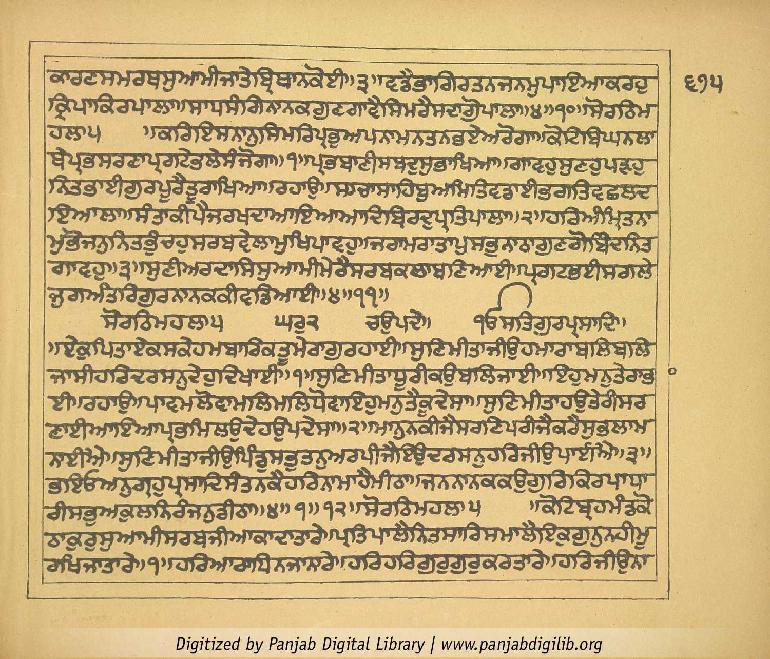 ਕਾਰਣਸਮਰਥਸੁਆਮੀਜਾਤੇਬ੍ਰਿਥਾਨਕੋਈ॥੩॥ਵਡੈਭਾਗਿਰਤਨਜਨਮੁਪਾਇਆਕਰਹੁ
ਕ੍ਰਿਪਾਕਿਰਪਾਲਾ॥ਸਾਧਸੰਗਿਨਾਨਕਗੁਣਗਾਵੈਸਿਮਰੈਸਦਾਗੋਪਾਲਾ॥੪॥੧੦॥ਸੋਰਠਿਮ
ਹਲਾ੫ ॥ਕਰਿਇਸਨਾਨੁਸਿਮਰਿਪ੍ਰਭੁਅਪਨਾਮਨਤਨਭਏਅਰੋਗਾ॥ਕੋਟਿਬਿਘਨਲਾ
ਥੇਪ੍ਰਭਸਰਣਾਪ੍ਰਗਟੇਭਲੇਸੰਜੋਗਾ॥੧॥ਪ੍ਰਭਬਾਣੀਸਬਦੁਸੁਭਾਖਿਆ॥ਗਾਵਹੁਸੁਣਹੁਪੜਹੁ
ਨਿਤਭਾਈਗੁਰਪੂਰੈਤੂਰਾਖਿਆ॥ਰਹਾਉ॥ਸਾਚਾਸਾਹਿਬੁਅਮਿਤਿਵਡਾਈਭਗਤਿਵਛਲਦ
ਇਆਲਾ॥ਸੰਤਾਕੀਪੈਜਰਖਦਾਆਇਆਆਦਿਬਿਰਦੁਪ੍ਰਤਿਪਾਲਾ॥੨॥ਹਰਿਅੰਮ੍ਰਿਤਨਾ
ਮੁਭੋਜਨੁਨਿਤਭੁੰਚਹੁਸਰਬਵੇਲਾਮੁਖਿਪਾਵਹੁ॥ਜਰਾਮਰਾਤਾਪੁਸਭੁਨਾਠਾਗੁਣਗੋਬਿੰਦਨਿਤ
ਗਾਵਹੁ॥੩॥ਸੁਣੀਅਰਦਾਸਿਸੁਆਮੀਮੇਰੈਸਰਬਕਲਾਬਣਿਆਈ॥ਪ੍ਰਗਟਭਈਸਗਲੇ
ਜੁਗਅੰਤਰਿਗੁਰਨਾਨਕਕੀਵਡਿਆਈ॥੪॥੧੧॥
ਸੋਰਠਿਮਹਲਾ੫ ਘਰੁ੨ ਚਉਪਦੇ ੴਸਤਿਗੁਰਪ੍ਰਸਾਦਿ॥
॥ਏਕੁਪਿਤਾਏਕਸਕੇਹਮਬਾਰਿਕਤੂਮੇਰਾਗੁਰਹਾਈ॥ਸੁਣਿਮੀਤਾਜੀਉਹਮਾਰਾਬਲਿਬਲਿ
ਜਾਸੀਹਰਿਦਰਸਨੁਦੇਹੁਦਿਖਾਈ॥੧॥ਸੁਣਿਮੀਤਾਧੂਰੀਕਉਬਲਿਜਾਈ॥ਇਹੁਮਨੁਤੇਰਾਭ
ਈ॥ਰਹਾਉ॥ਪਾਵਮਲੋਵਾਮਲਿਮਲਿਧੋਵਾਇਹੁਮਨੁਤੈਕੂਦੇਸਾ॥ਸੁਣਿਮੀਤਾਹਉਤੇਰੀਸਰ
ਣਾਈਆਇਆਪ੍ਰਭਮਿਲਉਦੇਹੁਉਪਦੇਸਾ॥੨॥ਮਾਨੁਨਕੀਜੈਸਰਣਿਪਰੀਜੈਕਰੈਸੁਭਲਾਮ
ਨਾਈਐ॥ਸੁਣਿਮੀਤਾਜੀਉਪਿੰਡੁਸਭੁਤਨੁਅਰਪੀਜੈਇਉਦਰਸਨੁਹਰਿਜੀਉਪਾਈਐ॥੩॥
ਭਇਓਅਨੁਗ੍ਰਹੁਪ੍ਰਸਾਦਿਸੰਤਨਕੈਹਰਿਨਾਮਾਹੈਮੀਠਾ॥ਜਨਨਾਨਕਕਉਗੁਰਿਕਿਰਪਾਧਾ
ਰੀਸਭੁਅਕੁਲਨਿਰੰਜਨੁਡੀਠਾ॥੪॥੧॥੧੨॥ਸੋਰਠਿਮਹਲਾ੫ ॥ਕੋਟਿਬ੍ਰਹਮੰਡਕੋ
ਠਾਕੁਰੁਸੁਆਮੀਸਰਬਜੀਆਕਾਦਾਤਾਰੇ॥ਪ੍ਰਤਿਪਾਲੈਨਿਤਸਾਰਿਸਮਾਲੈਇਕੁਗੁਨੁਨਹੀਮੂ
ਰਖਿਜਾਤਾਰੇ॥੧॥ਹਰਿਆਰਾਧਿਨਜਾਨਾਰੇ॥ਹਰਿਹਰਿਗੁਰੁਗੁਰੁਕਰਤਾਰੇ॥ਹਰਿਜੀਉਨਾ
੬੧੫
Digitized by Panjab Digital Library | www.panjabdigilib.org